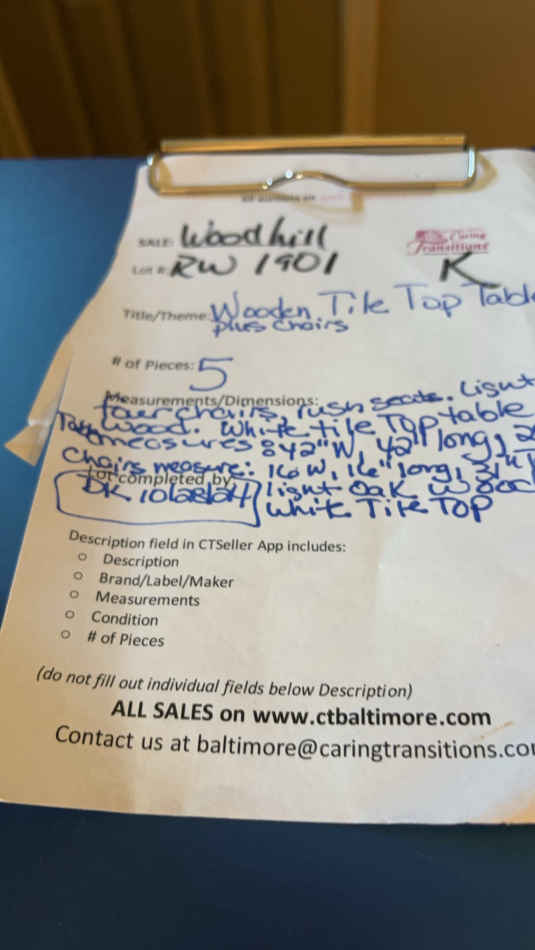 SALE: Woodhill
Caring
Transitions
Lot #: RW 1901
K
Title/Theme: Wooden Tile Top Table
plus chairs
# of Pieces: 5
Measurements/Dimensions:
four chairs, rush seats. Light
wood. White tile Top table
measures: 42"W, 42" long,
Chairs measure: 16 W, 16" long, 31"
Lot completed by:
DK 10/28/24
light Oak
White Tile Top
Description field in CTSeller App includes:
○ Description
○ Brand/Label/Maker
○ Measurements
○ Condition
○ # of Pieces
(do not fill out individual fields below Description)
ALL SALES on www.ctbaltimore.com
Contact us at baltimore@caringtransitions.co